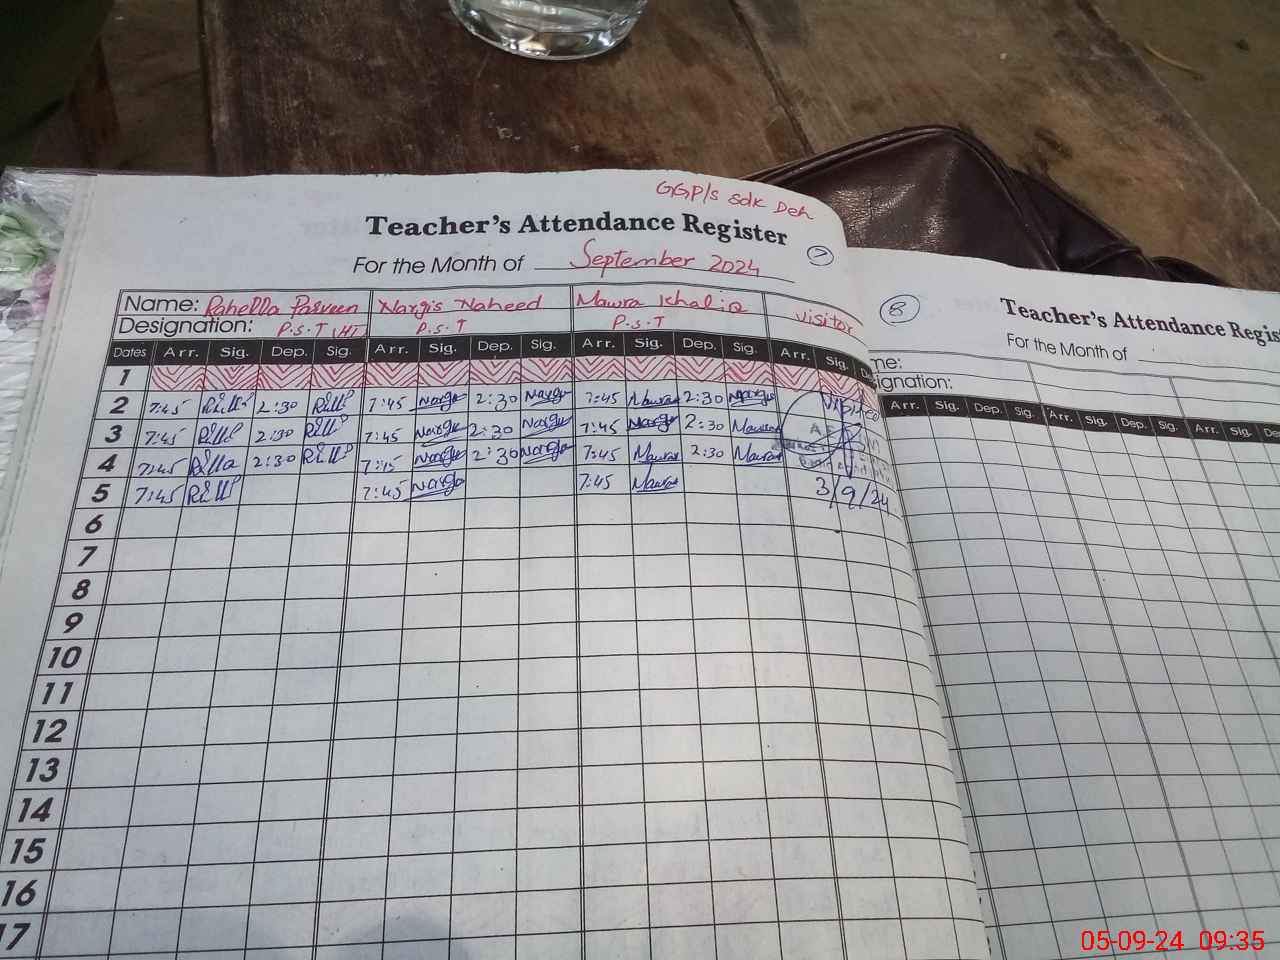 GGP/s sdk Deh
Teacher's Attendance Register
7
For the Month of September 2024
Name: Rahella Parveen Nargis Naheed Mawra Khaliq visitor
Designation: P.S.T P.S.T P.S.T
Dates Arr. Sig. Dep. Sig. Arr. Sig. Dep. Sig. Arr. Sig. Dep. Sig. Arr. Sig. De
1
2 7:45 2:30 7:45 Nargis 2:30 Nargis 7:45 Mawra 2:30 Nargis
3 7:45 2:30 7:45 Nargis 2:30 Nargis 7:45 Nargis 2:30 Mawra
4 7:45 2:30 7:45 Nargis 2:30 Nargis 7:45 Mawra 2:30 Mawra
5 7:45 7:45 Nargis 7:45 Mawra 3/9/24
6
7
8
9
10
11
12
13
14
15
16
17
8
Teacher's Attendance Regis
For the Month of
me:
signation:
Arr. Sig. Dep. Sig. Arr. Sig. Dep. Sig. Arr. Sig. De
05-09-24 09:35